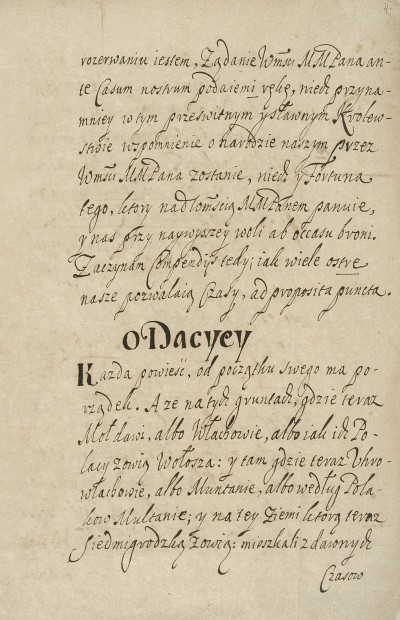 rozerwaniu iestem, Ządanie Wmśći MMPana an-
te Casum nostrum podaiemi rękę, niech przyna-
mnięy w tym prześwitnym y sławnym Krolew-
stwie wspomnienie o narodzie naszym przez
Wmśći MMPana zostanie, niech y Fortuna
tego, ktory nad Iomścią MMPanem panuie,
y nas przy naywyższey woli ab occasu broni.
Zaczynám Compendijs tedy; iák wiele ostre
nasze pozwalaią Czásy, ad proposita puncta.
O Dacyey
Kazda powieść, od początku swego ma po-
rządek. A ze na tych gruntach, gdzie teraz
Mołdawi, albo Włachowie, albo iák ich Po-
lacy zowią Wołosza: y tam gdzie teraz Uhro-
włachowie, albo Muntanie, albo według Pola-
kow Multanie; y na tey Ziemi ktorą teraz
Siedmigrodzką Zowią: mieszkali z dawnych
Czasow